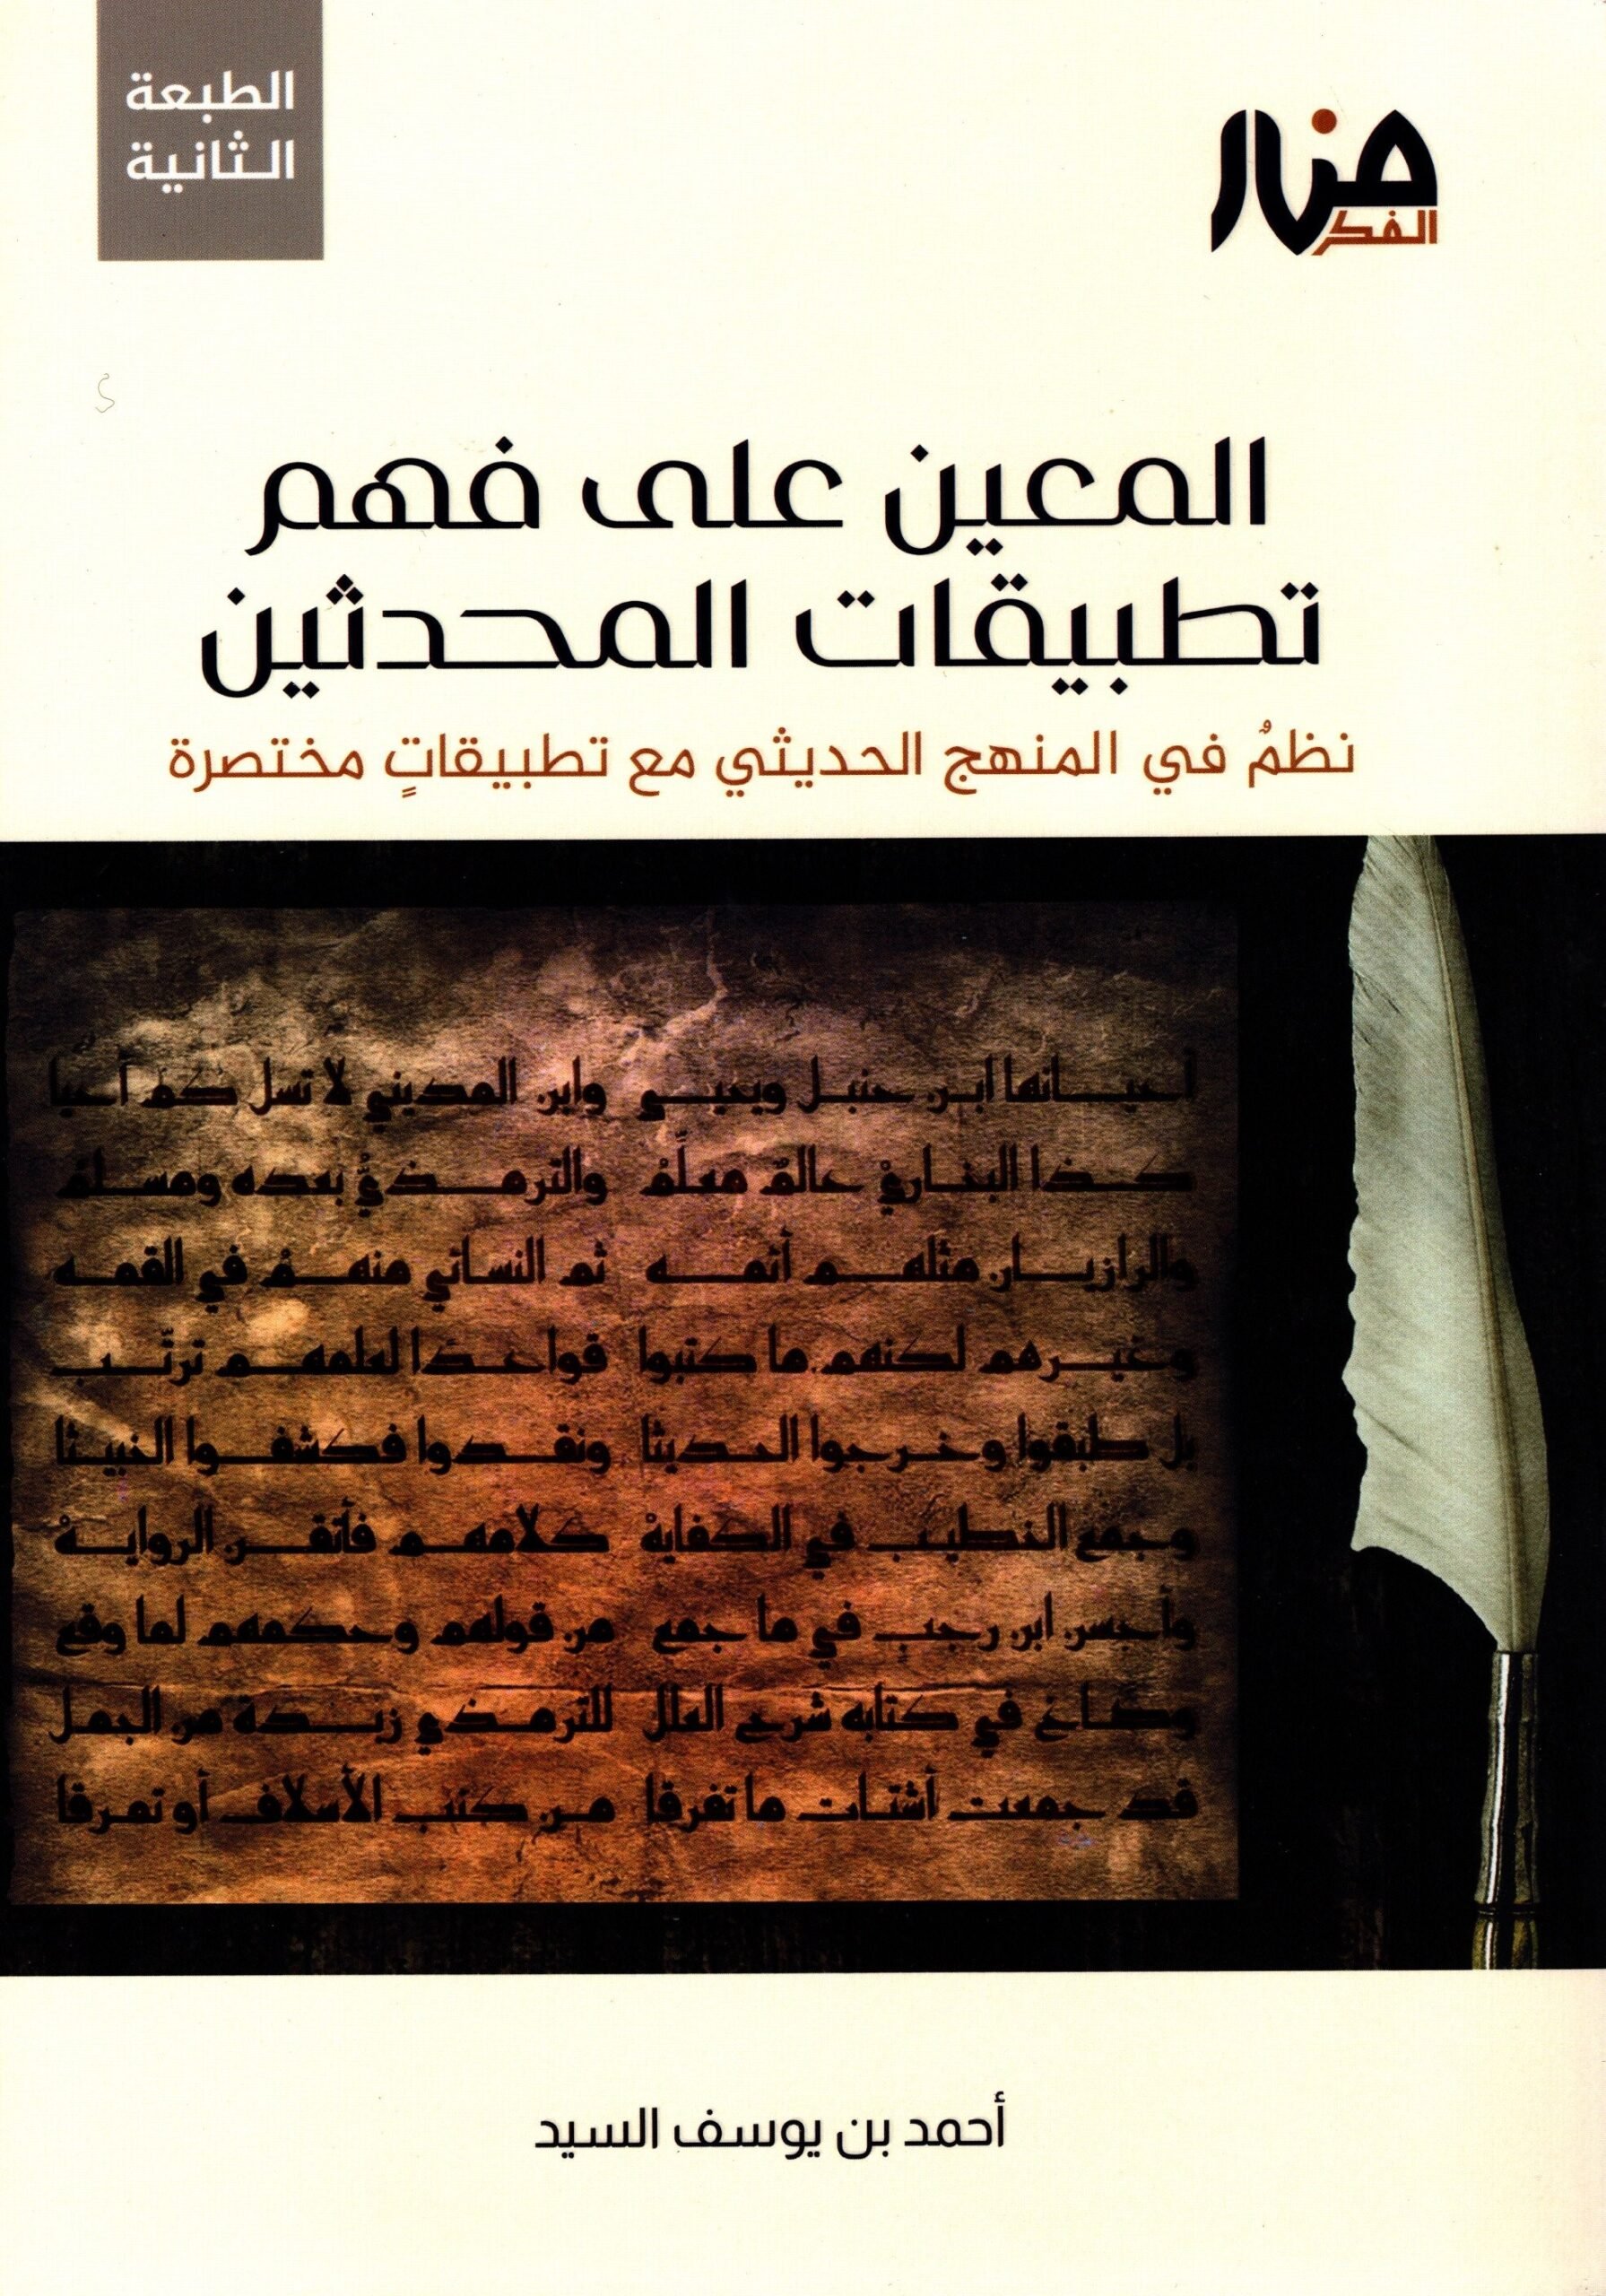 الطبعة
الثانية
منار
الفكر
المعين على فهم
تطبيقات المحدثين
نظمٌ في المنهج الحديثي مع تطبيقاتٍ مختصرة
أحيانها ابن حنبل ويحيى وابن المديني لا تسل كم أحيا
كذا البخاريْ عالمٌ معلِّمُ والترمذيُّ بعده ومسلمُ
والرازيان مثلهم أئمه ثم النسائي منهمُ في القمه
وغيرهم لكنهم ما كتبوا قواعدًا لعلمهم ترتّب
بل طبقوا وخرجوا الحديثا ونقدوا فكشفوا الخبيثا
وجمع الخطيب في الكفايةْ كلامهم فأتقن الروايةْ
وأحسن ابن رجبٍ في ما جمع من قولهم وحكمهم لما وقع
وصاغ في كتابه شرح العلل للترمذي زبدة من الجمل
قد جمعت أشتات ما تفرقا من كتب الأسلاف أو تمزقا
أحمد بن يوسف السيد